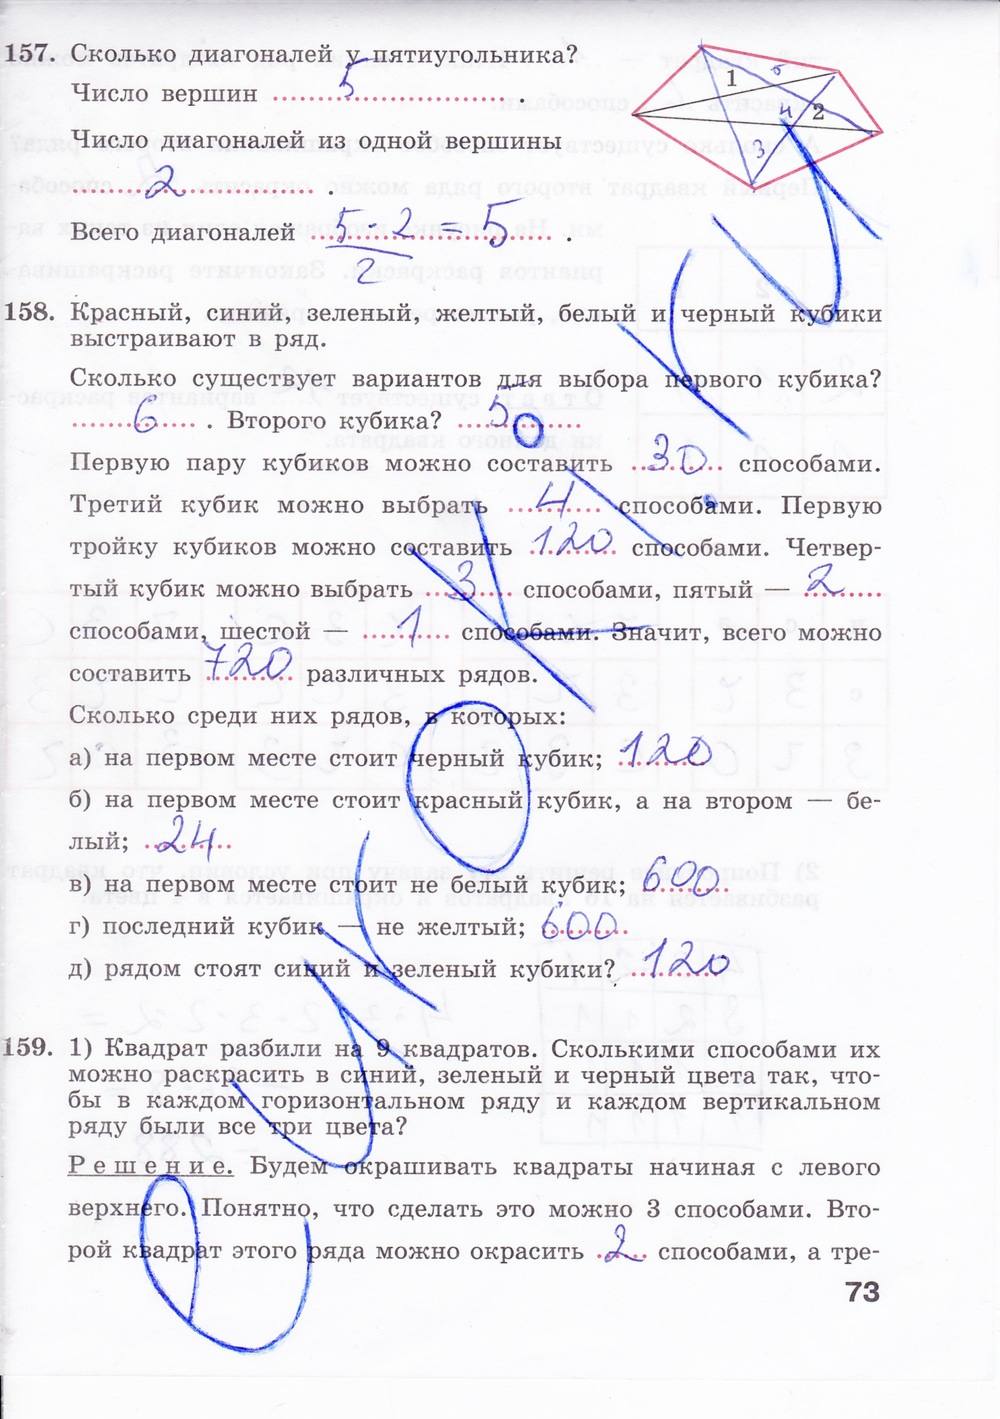 157. Сколько диагоналей у пятиугольника?
Число вершин 5 .
Число диагоналей из одной вершины
2 .
Всего диагоналей 5·2/2 = 5 .
1 5
4 2
3
158. Красный, синий, зеленый, желтый, белый и черный кубики
выстраивают в ряд.
Сколько существует вариантов для выбора первого кубика?
6 . Второго кубика? 5
Первую пару кубиков можно составить 30 способами.
Третий кубик можно выбрать 4 способами. Первую
тройку кубиков можно составить 120 способами. Четвер-
тый кубик можно выбрать 3 способами, пятый — 2
способами, шестой — 1 способами. Значит, всего можно
составить 720 различных рядов.
Сколько среди них рядов, в которых:
а) на первом месте стоит черный кубик; 120
б) на первом месте стоит красный кубик, а на втором — бе-
лый; 24
в) на первом месте стоит не белый кубик; 600
г) последний кубик — не желтый; 600
д) рядом стоят синий и зеленый кубики? 120
159. 1) Квадрат разбили на 9 квадратов. Сколькими способами их
можно раскрасить в синий, зеленый и черный цвета так, что-
бы в каждом горизонтальном ряду и каждом вертикальном
ряду были все три цвета?
Решение. Будем окрашивать квадраты начиная с левого
верхнего. Понятно, что сделать это можно 3 способами. Вто-
рой квадрат этого ряда можно окрасить 2 способами, а тре-
73